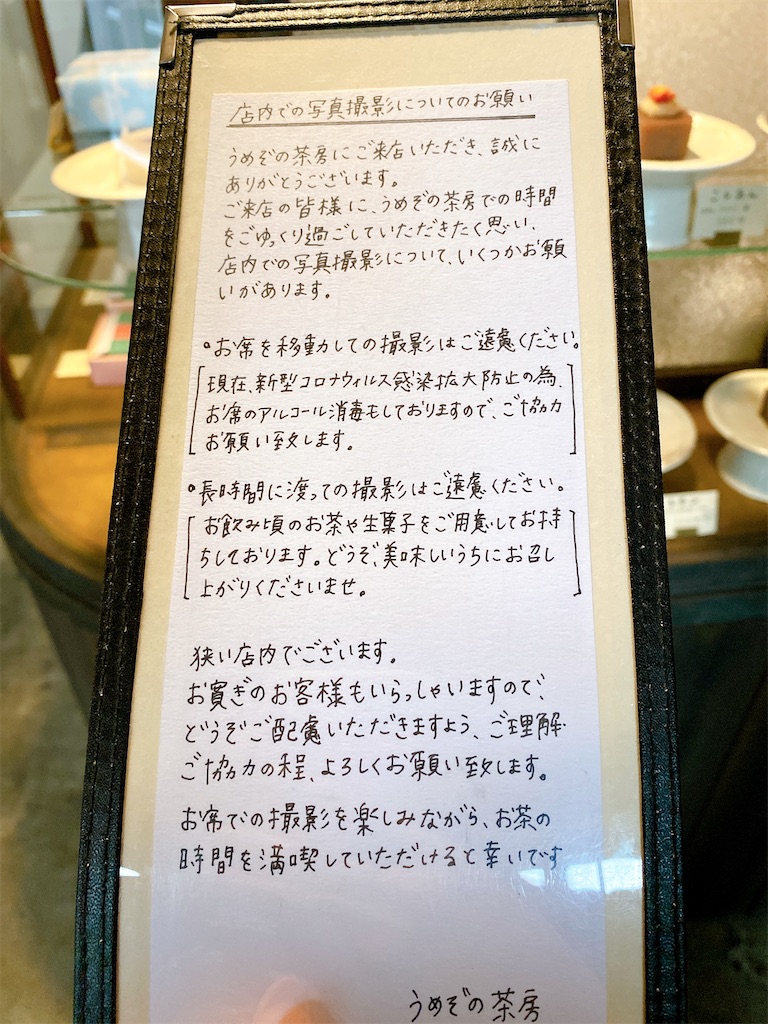 店内での写真撮影についてのお願い
うめぞの茶房にご来店いただき、誠に
ありがとうございます。
ご来店の皆様に、うめぞの茶房での時間
をごゆっくり過ごしていただきたく思い、
店内での写真撮影について、いくつかお願
いがあります。
•お席を移動しての撮影はご遠慮ください。
現在、新型コロナウィルス感染拡大防止の為、
お席のアルコール消毒もしておりますので、ご協力
お願い致します。
•長時間に渡っての撮影はご遠慮ください。
お飲み頃のお茶や生菓子をご用意してお持
ちしております。どうぞ、美味しいうちにお召し
上がりくださいませ。
狭い店内でございます。
お寛ぎのお客様もいらっしゃいますので、
どうぞご配慮いただきますよう、ご理解
ご協力の程、よろしくお願い致します。
お席での撮影を楽しみながら、お茶の
時間を満喫していただけると幸いです
うめぞの茶房